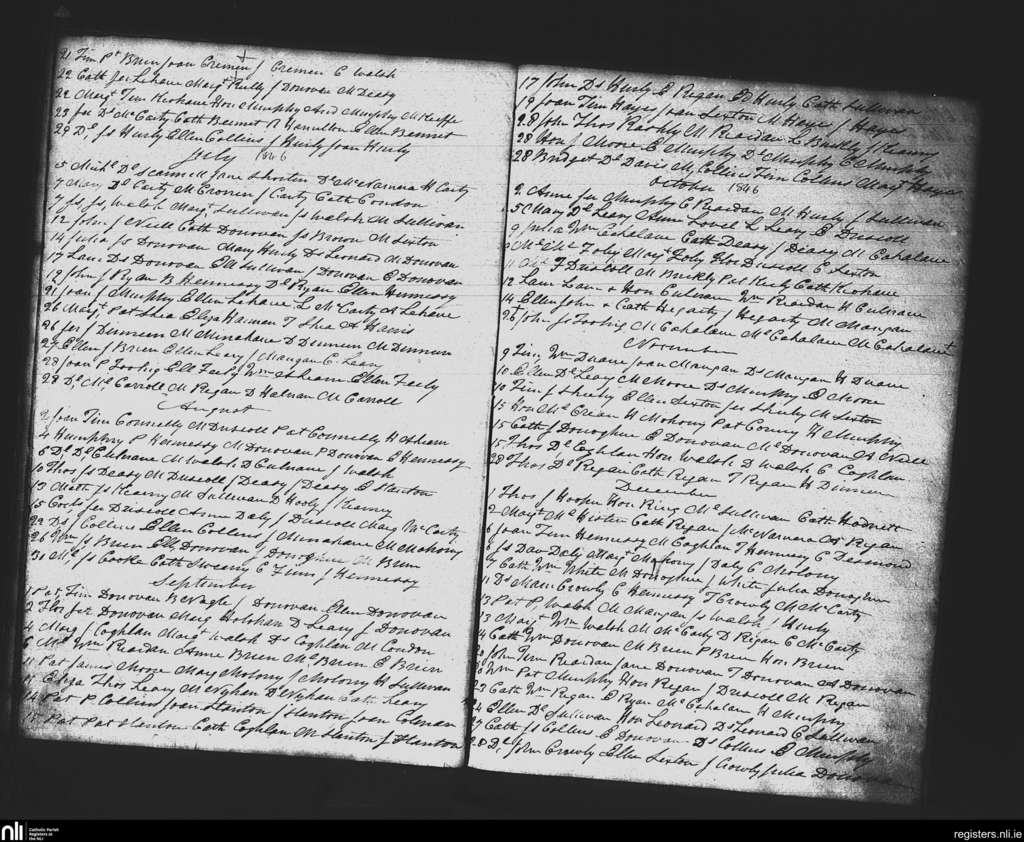 21 Tim Pt Brien Joan Cremen J Cremen C Walsh
22 Cath Jas Lehane Margt Reilly J Donovan M Deasy
22 Margt Tim Keohane Hon Murphy And Murphy M Keiffe
23 Jer Ds McCarty Cath Bennet R Hamilton Ellen Bennet
29 Ds Js Hurly Ellen Collins J Hurly Joan Hurly
July 1846
5 Michl Ds Scannell Jane Shorten Ds McNamara H Carty
7 Mary Ds Carty M Cronen J Carty Cath Condon
7 Js Js Walsh Margt Sullivan Js Walsh M Sullivan
12 John J Neill Cath Donovan Js Brown M Sexton
14 Julia Js Donovan Mary Hurly Ds Leonard M Donovan
17 Lau Ds Donovan M Sullivan J Donovan C Donovan
19 John J Ryan B Hennessy Ds Ryan Ellen Hennessy
21 Joan J Murphy Ellen Lehane L McCarty A Lehane
26 Margt Pat Shea Eliza Harman T Shea A Harris
26 Jer J Dinneen M Minahane D Dinneen M Dinneen
27 Ellen J Brien Ellen Leary J Mangan C Leary
28 Joan P Toohig Ellen Wm Ahearn Ellen
28 Ds Ml Carroll M Regan D Halnan M Carroll
August
2 Joan Tim Connelly M Driscoll Pat Connelly H Ahearn
4 Humphry P Hennessy M Donovan P Donovan C Hennessy
5 Ds Ds Culnane M Walsh D Culnane J Walsh
10 Thos J Deasy M Driscoll J Deasy J Deasy E Stanton
13 Cath Js Kearny M Sullivan D Hooly J Kearny
15 Cath Jer Driscoll Anne Daly J Driscoll Marg McCarty
22 Ds J Collins Ellen Collins J Minahane M Mahony
26 Wm Js Brien Elly Donovan J Donoghue M Brien
31 Ml Js Cooke Cath Sweeny C Finn J Hennessy
September
1 Pat Tim Donovan B Nagle J Donovan Ellen Donovan
2 Flor Jer Donovan Marg Holohan D Leary J Donovan
4 Marg J Coghlan Margt Walsh Ds Coghlan M Condon
6 Ml Wm Reardan Anne Brien Ml Brien E Brien
11 Pat James Moore Mary Molony J Molony H Sullivan
Eliza Thos Leary M Veghan D Veghan Cath Leary
14 Pat P Collins Joan Stanton J Stanton Joan Colman
15 Pat Pat Stanton Cath Coghlan M Stanton J Stanton
17 John Ds Hurly E Regan D Hurly Cath Sullivan
19 Joan Tim Hayes Joan Sexton M Hayes J Hayes
28 John Thos M Reardan L Buckly J Kearny
28 Hon J Moore E Murphy Ds Murphy E Murphy
28 Bridget Ds Davis M Collins Tim Collins Margt Hayes
October 1846
2 Anne Jer Murphy C Reardan M Hurly J Sullivan
5 Mary Ds Leary Anne Lovel L Leary E Driscoll
9 Julia Wm Cahalane Cath Deasy J Deasy M Cahalane
9 Ml Ml Foley Margt Foly Flor Driscoll C Sexton
11 F Driscoll M Buckly Pat Hurly Cath Keohane
12 Laur Laur & Hon Culnane Wm Reardan H Culnane
14 Ellen John & Cath Hegarty J Hegarty M Mangan
26 John Js Toohig M Cahalane Ml Cahalane M Cahalane
November
9 Tim Wm Duane Joan Mangan Ds Mangan H Duane
10 Ellen Ds Leary M Moore Ds Murphy E Moore
10 Tim J Sheehy Ellen Sexton Jer Sheehy M Sexton
15 Hon Ml Crean H Mahony Pat Conny H Murphy
15 Cath J Donoghue E Donovan Ml Donovan A Neill
15 Thos Ds Coghlan Hon Walsh D Walsh C Coghlan
28 Thos Ds Regan Cath Regan T Regan H Dinneen
December
1 Thos J Hooper Hon Ring Ml Sullivan Cath Hodnett
2 Margt Ml Hirten Cath Regan J McNamara A Regan
6 Joan Tim Hennessy M Coghlan T Hennessy C Desmond
6 Js Dav Daly Margt Mahony J Daly C Molony
7 Cath Wm White M Donoghue J White Julia Donoghue
11 Ds Mau Crowly C Hennessy T Crowly M McCarty
13 Pat P Walsh M Mangan Js Walsh J Hurly
13 Margt Wm Walsh M McCarty D Regan C McCarty
14 Cath Wm Donovan M Brien P Brien Hon Brien
John Tim Reardan Jane Donovan T Donovan A Donovan
Wm Pat Murphy Hon Regan J Driscoll M Regan
23 Cath Wm Regan E Ryan Ml Cahalane H Murphy
24 Ellen Ds Sullivan Hon Leonard Ds Leonard C Sullivan
27 Cath Js Collins E Donovan Ds Collins E Murphy
28 Ds John Crowly Ellen Sexton J Crowly Julia Donovan
nli
Catholic Parish
Registers at
the NLI
registers.nli.ie